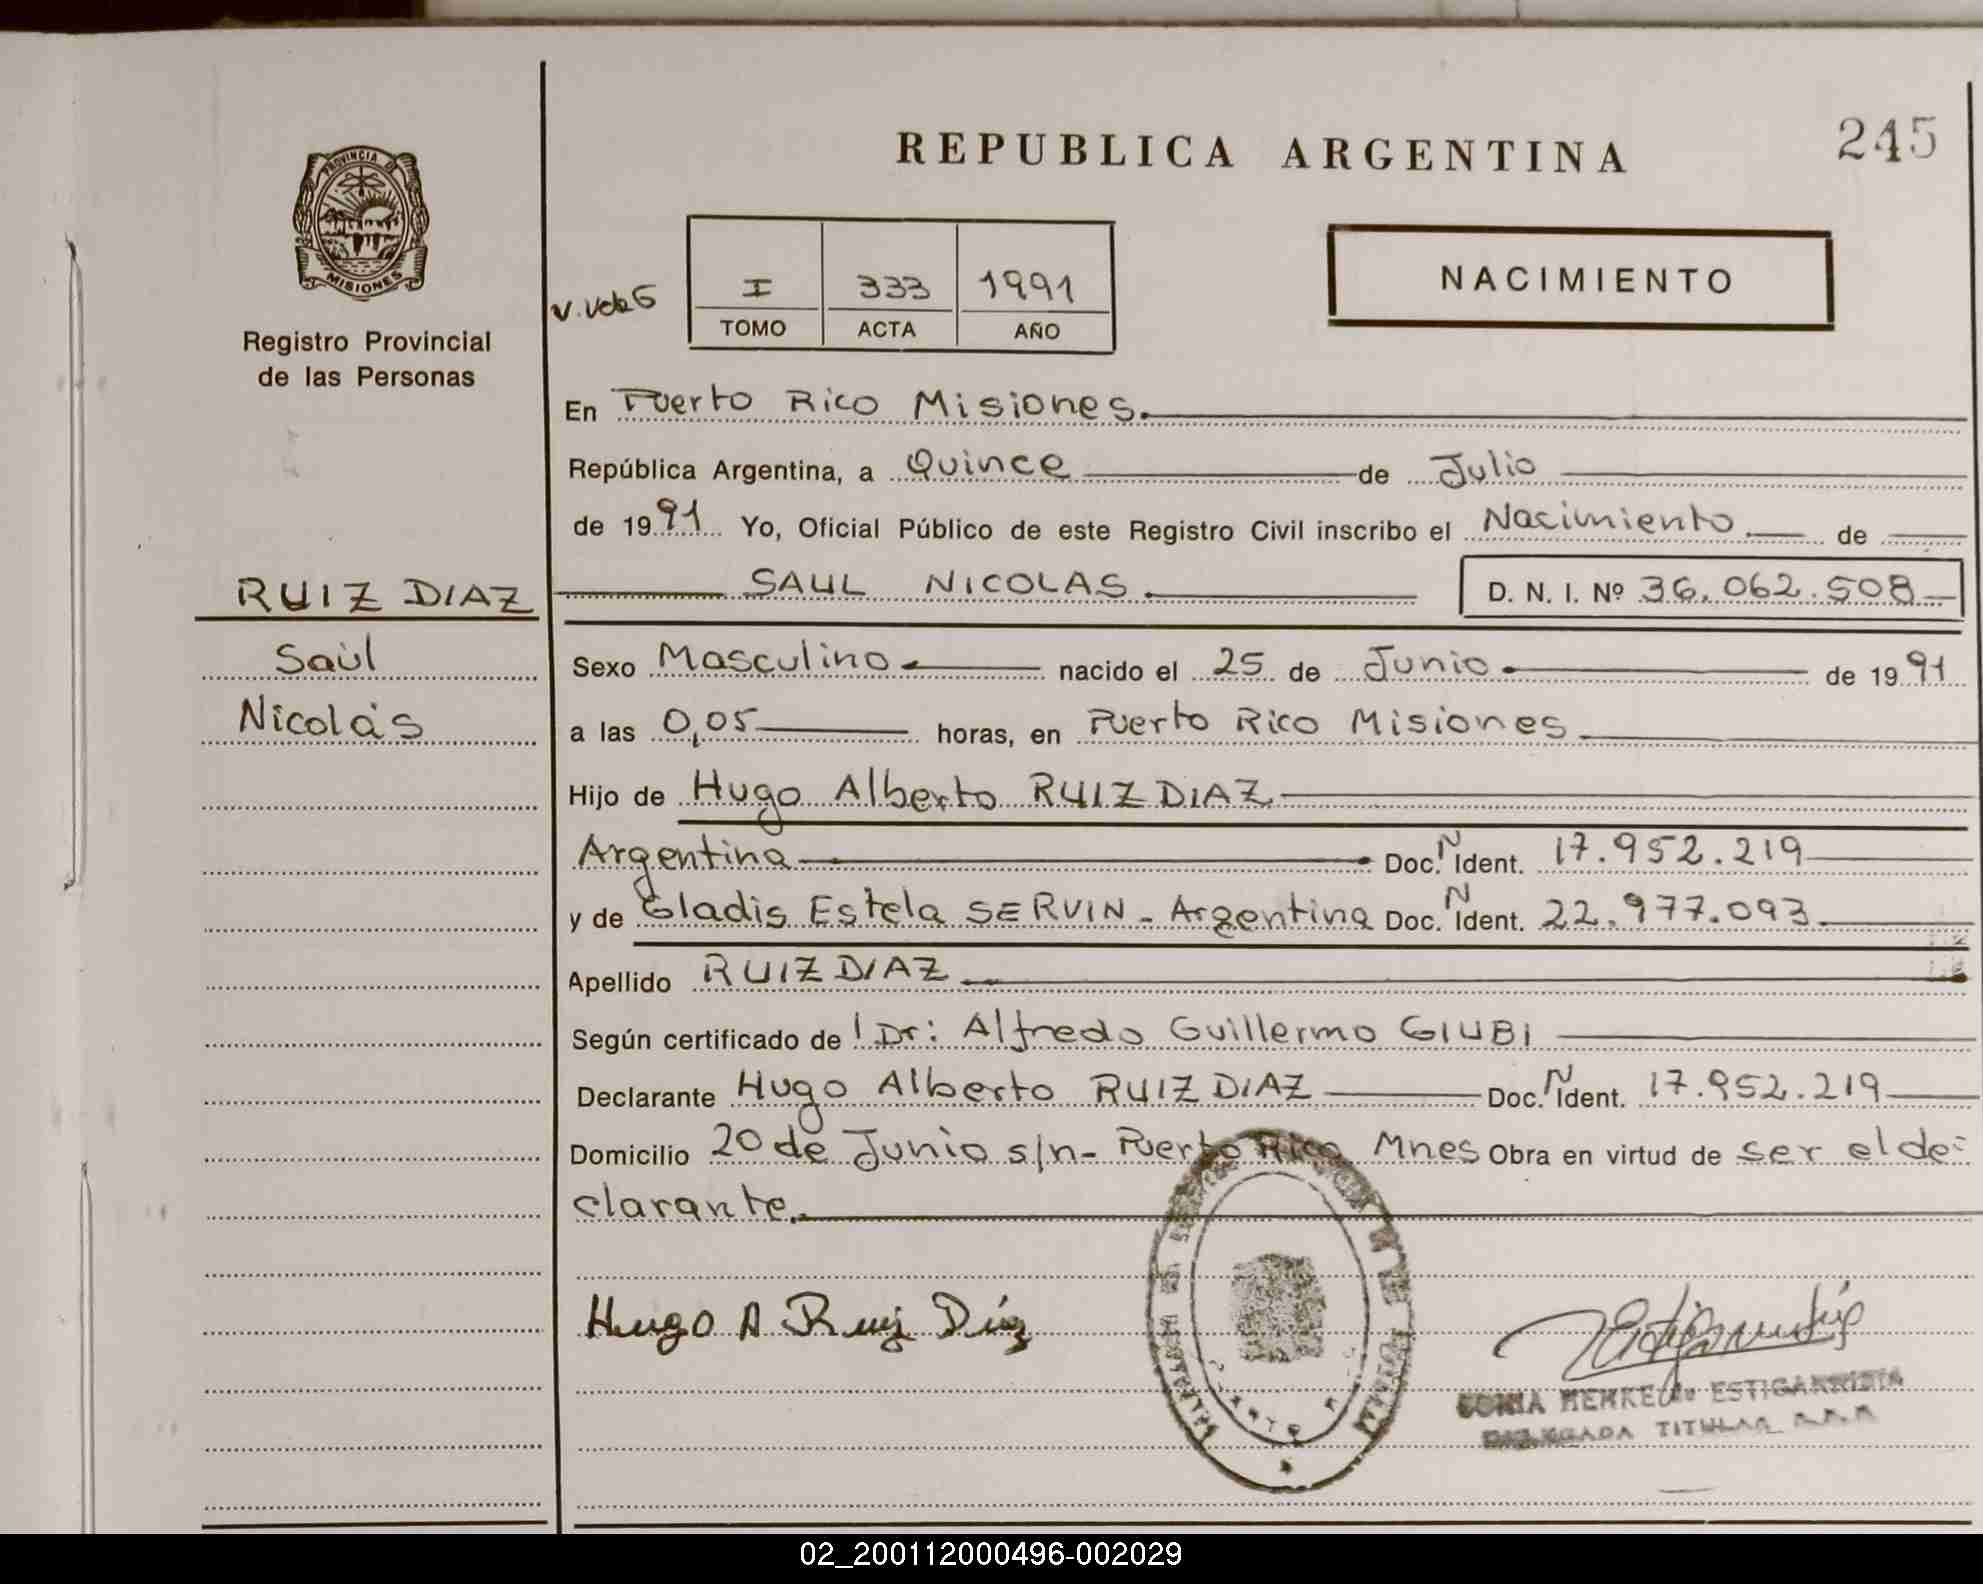 REPUBLICA ARGENTINA
245
PROVINCIA DE
MISIONES
Registro Provincial
de las Personas
I 333 1991
TOMO ACTA AÑO
NACIMIENTO
En Puerto Rico Misiones.
República Argentina, a Quince de Julio
de 1991 Yo, Oficial Público de este Registro Civil inscribo el Nacimiento de
RUIZ DIAZ
SAUL NICOLAS
D. N. I. Nº 36.062.508
Saúl
Nicolás
Sexo Masculino nacido el 25 de Junio de 1991
a las 0,05 horas, en Puerto Rico Misiones
Hijo de Hugo Alberto RUIZ DIAZ
Argentina Doc. N Ident. 17.952.219
y de Gladis Estela SERVIN - Argentina Doc. N Ident. 22.977.093.
Apellido RUIZ DIAZ
Según certificado de Dr: Alfredo Guillermo GIUBI
Declarante Hugo Alberto RUIZ DIAZ Doc. N Ident. 17.952.219
Domicilio 20 de Junio s/n- Puerto Rico Mnes Obra en virtud de ser el de=
clarante.
Hugo A Ruiz Díaz
SONIA MENKE de ESTIGARRIBIA
DELEGADA TITULAR
02_200112000496-002029